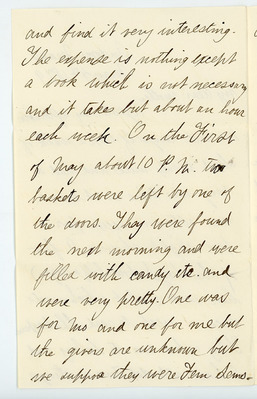 and find it very interesting.
The expense is nothing except
a book which is not necessary
and it takes but about an hour
each week. On the First
of May about 10 P.M. two
baskets were left by one of
the doors. They were found
the next morning and were
filled with candy etc. and
were very pretty. One was
for Mo and one for me but
the givers are unknown but
we suppose they were Fem Sems-